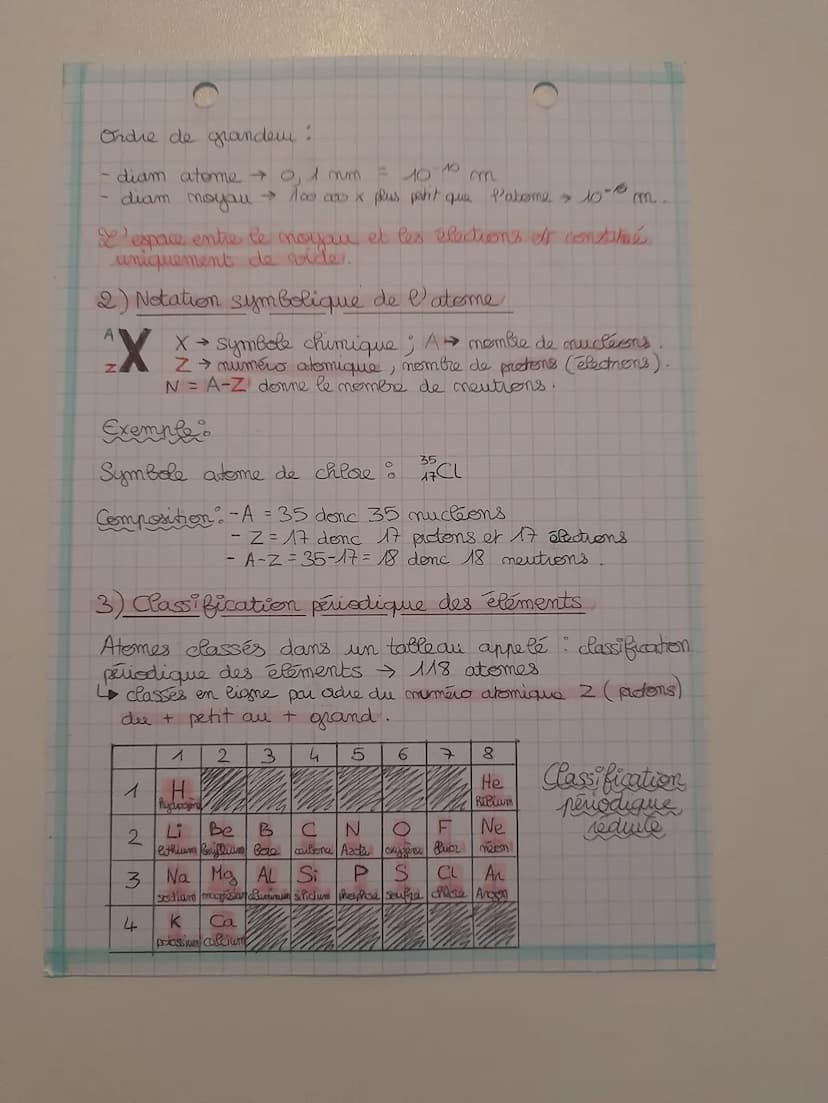 Ordre de grandeur :
- diam atome → 0,1 nm = 10⁻¹⁰ m
- diam noyau → 100 000 x plus petit que l'atome → m.
L'espace entre le noyau et les électrons est constitué
uniquement de vide.
2) Notation symbolique de l'atome
A
Z X X → symbole chimique ; A → nombre de nucléons.
Z → numéro atomique, nombre de protons (électrons).
N = A-Z donne le nombre de neutrons.
Exemple :
Symbole atome de chlore : ³⁵₁₇Cl
Composition : - A = 35 donc 35 nucléons
- Z = 17 donc 17 protons et 17 électrons
- A-Z = 35-17 = 18 donc 18 neutrons.
3) Classification périodique des éléments
Atomes classés dans un tableau appelé : classification
périodique des éléments → 118 atomes
↳ classés en ligne par ordre du numéro atomique Z (protons)
du + petit au + grand.
1 2 3 4 5 6 7 8
1 H He
hydrogène hélium
2 Li Be B C N O F Ne
lithium béryllium bore carbone Azote oxygène fluor néon
3 Na Mg AL Si P S CL Ar
sodium magnésium aluminium silicium phosphore soufre chlore Argon
4 K Ca
potassium calcium
Classification
périodique
réduite